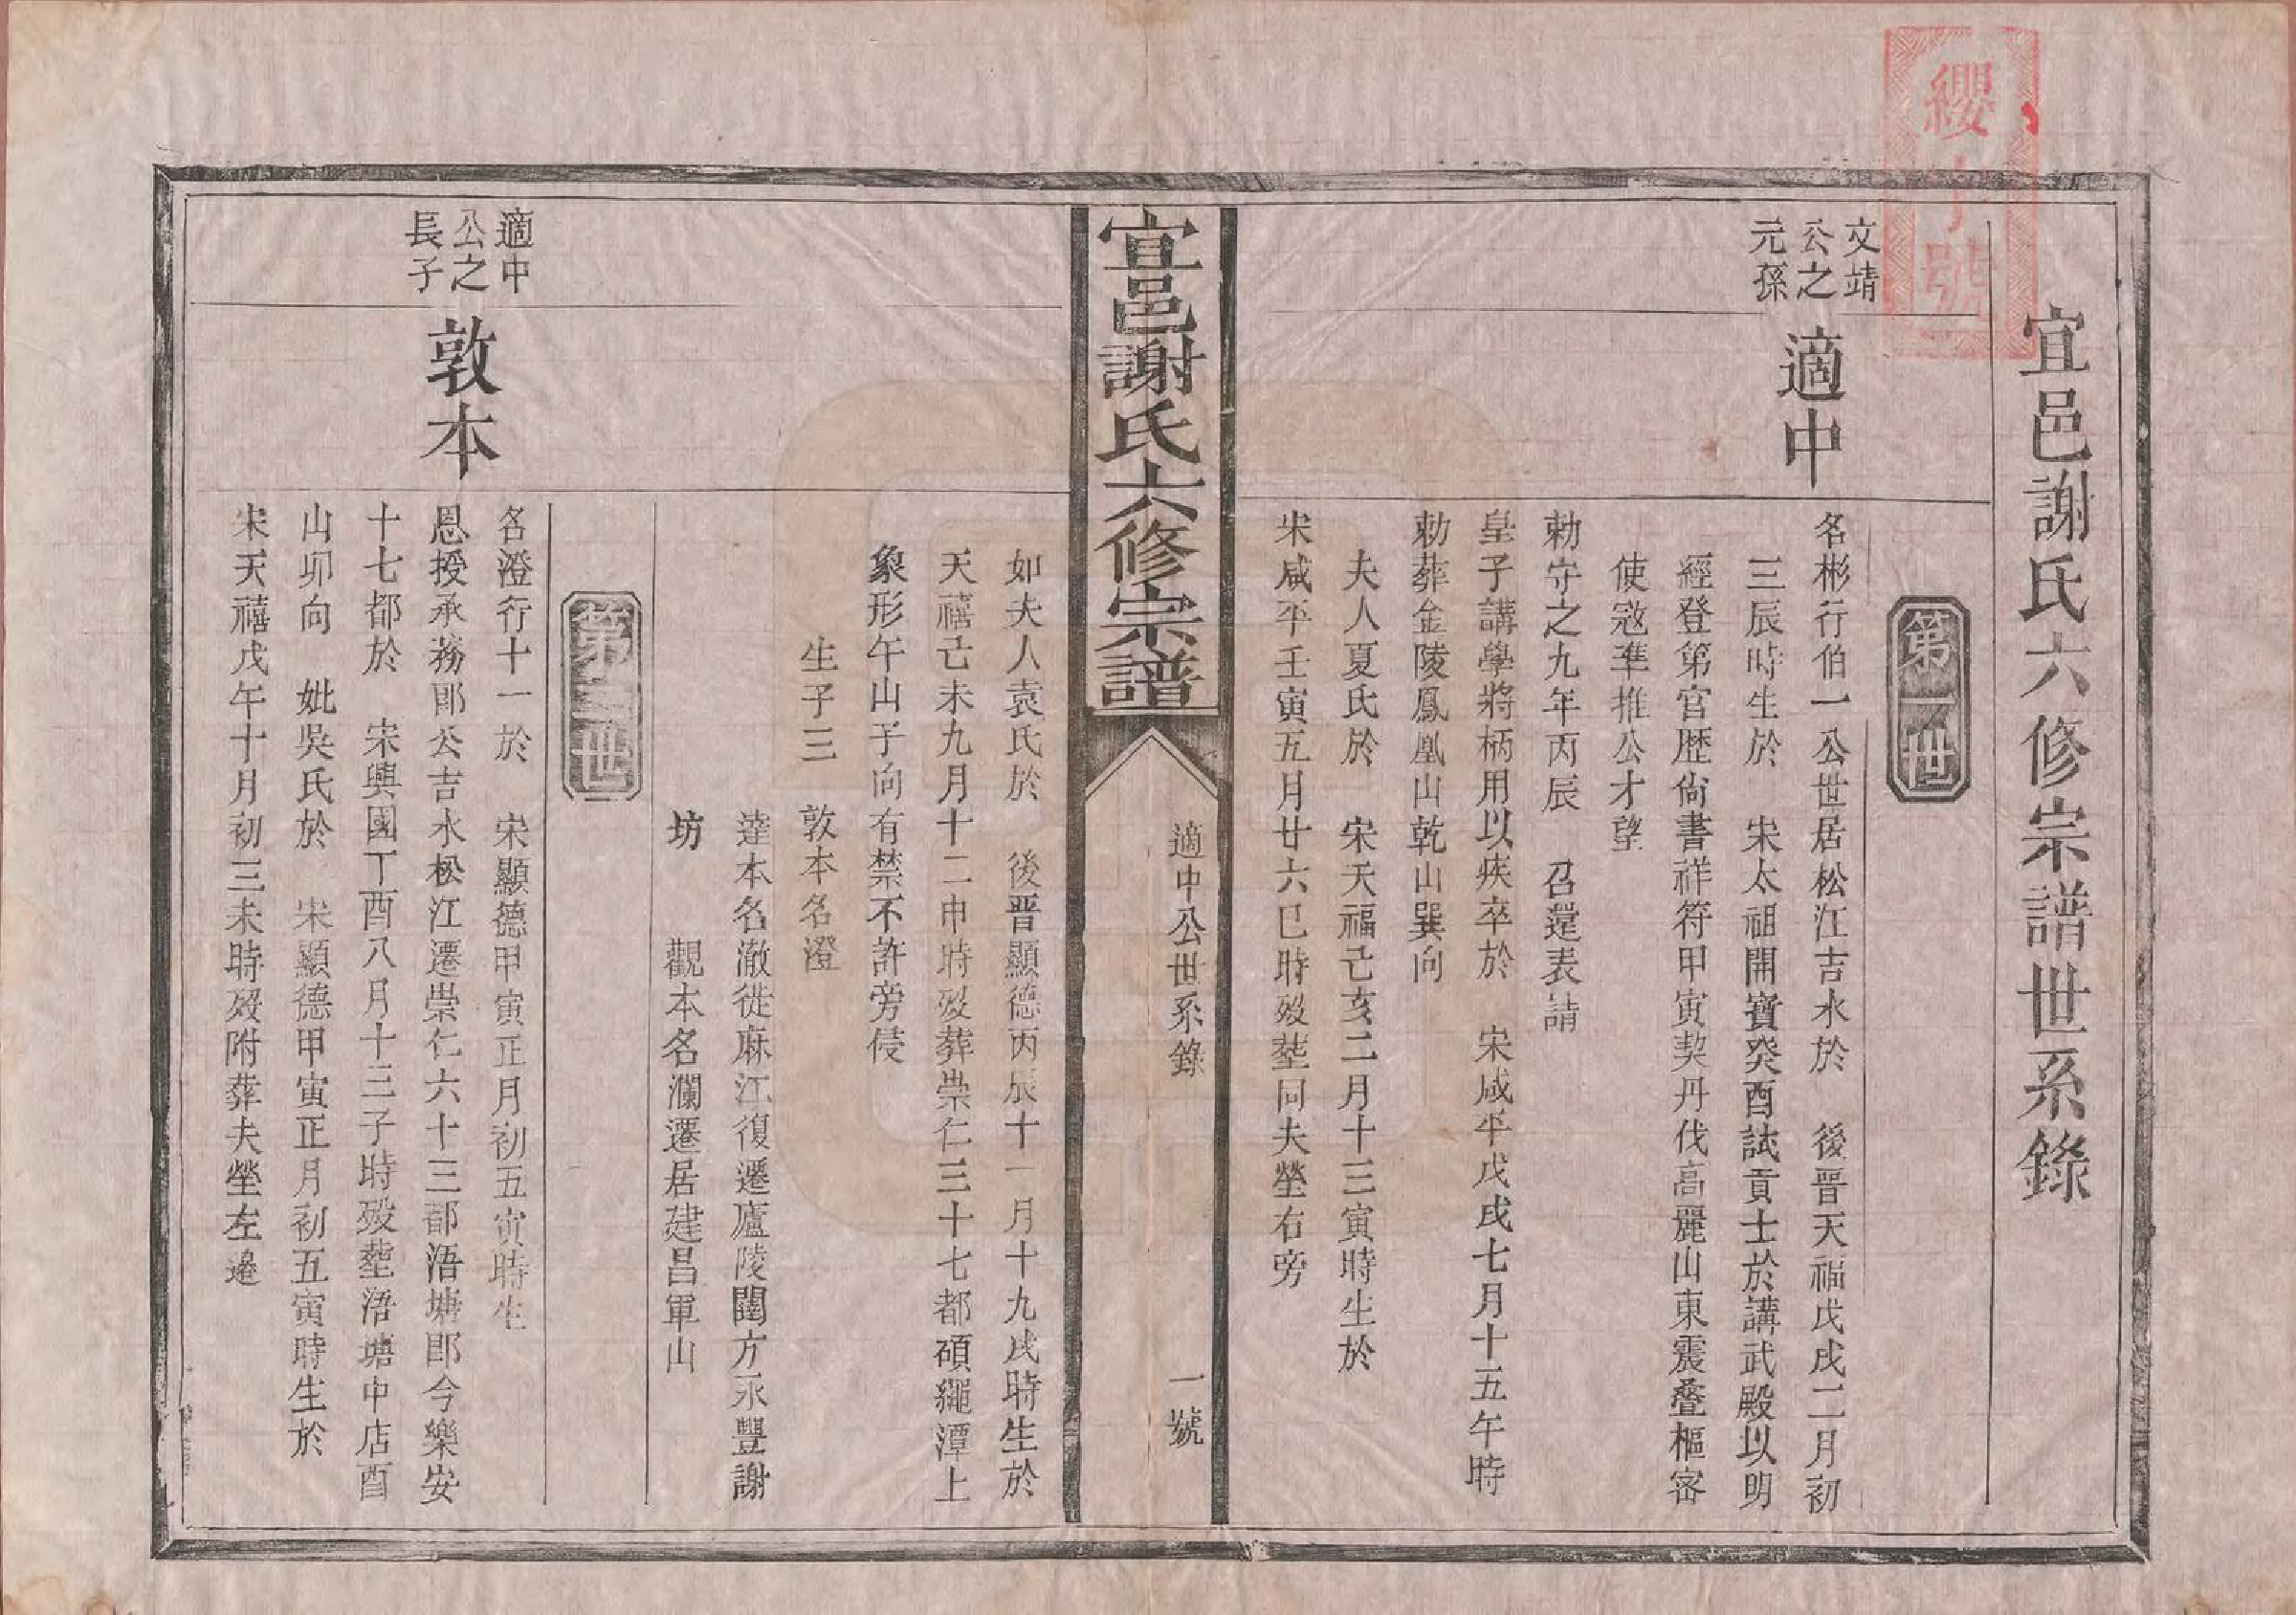 宜邑謝氏六修宗譜世系錄
纓字號
第一世
文靖
公之
元孫
適中
名彬行伯一公世居松江吉水於 後晋天福戊戌二月初
三辰時生於 宋太祖開寳癸酉試貢士於講武殿以明
經登第官歴尙書祥符甲寅契丹伐高麗山東震叠樞密
使宼準推公才望
勅守之九年丙辰 召還表請
皇子講學將柄用以疾卒於 宋咸平戊戌七月十五午時
勅葬金陵鳳凰山乾山巽向
夫人夏氏於 宋天福己亥二月十三寅時生於
宋咸平壬寅五月廿六巳時殁塟同夫塋右旁
宜邑謝氏六修宗譜
適中公世系錄
一號
如夫人袁氏於 後晋顯德丙辰十一月十九戌時生於
天禧己未九月十二申時殁葬崇仁三十七都碩繩潭上
象形午山子向有禁不許旁侵
生子三 敦本名澄
達本名澈徙麻江復遷廬陵闉方永豐謝
坊 觀本名瀾遷居建昌軍山
第二世
適中
公之
長子
敦本
名澄行十一於 宋顯德甲寅正月初五寅時生
恩授承務郎公吉水松江遷崇仁六十三都浯塘卽今樂安
十七都於 宋興國丁酉八月十三子時殁塟浯塘中店酉
山卯向 妣吳氏於 宋顯德甲寅正月初五寅時生於
宋天禧戊午十月初三未時殁附葬夫塋左邊